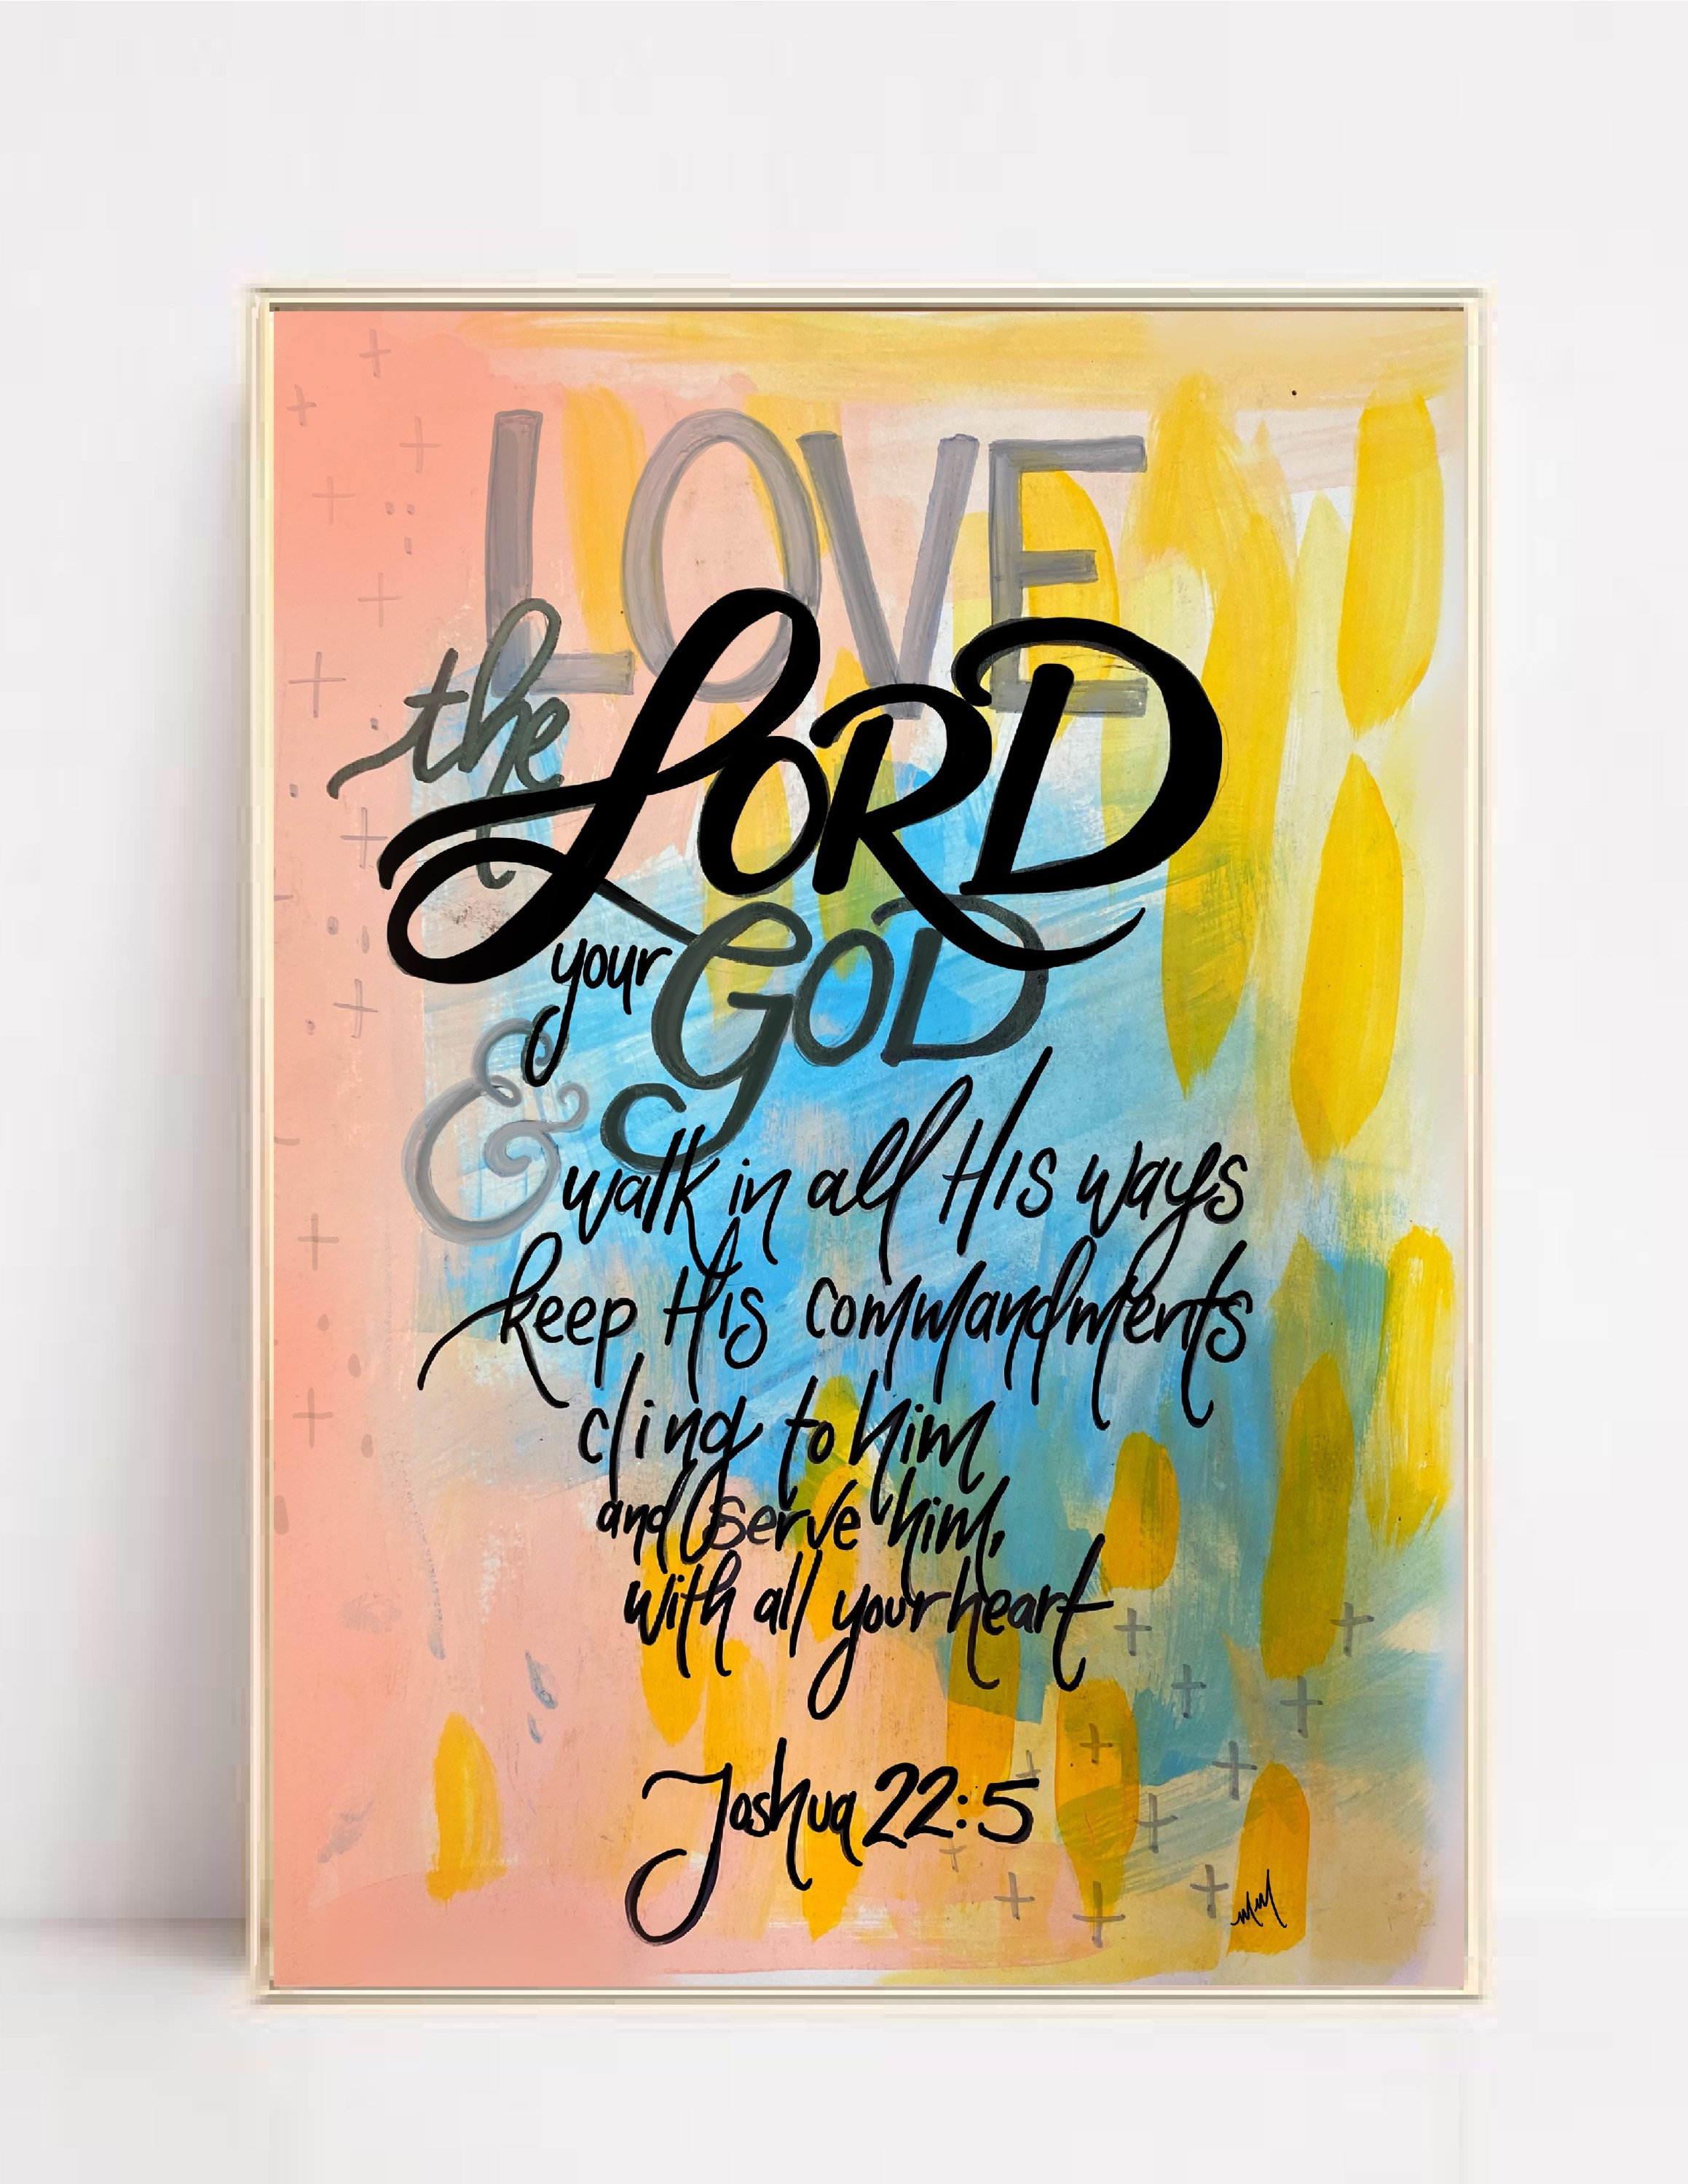 LOVE
the LORD
your GOD
& walk in all His ways
keep His commandments
cling to him
and serve him,
with all your heart
Joshua 22:5
MM